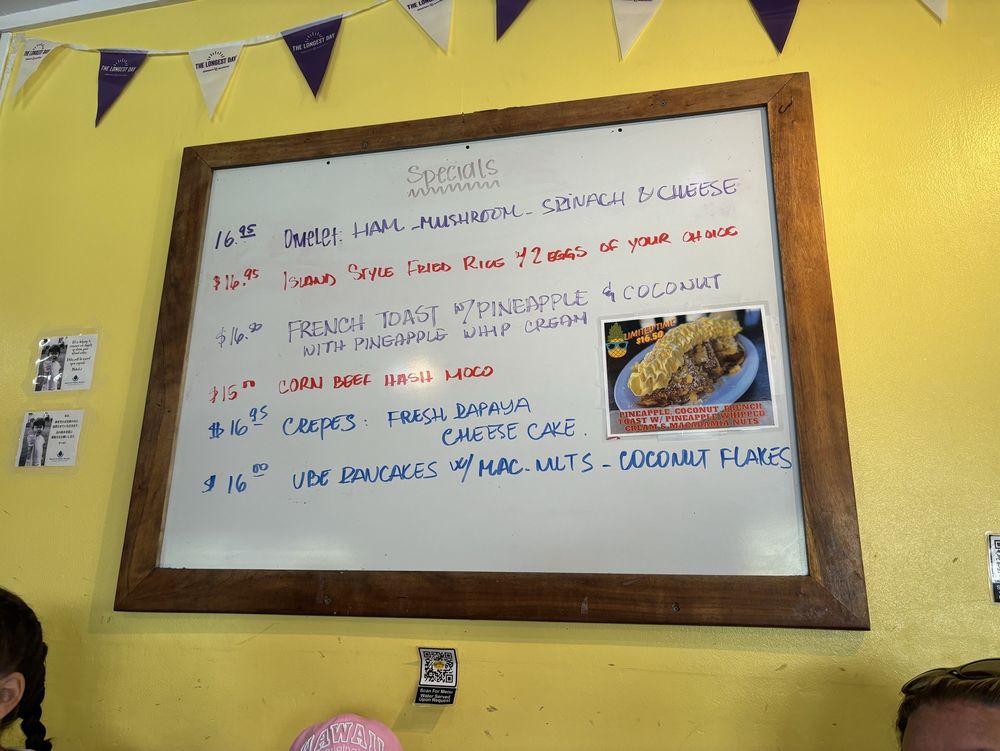 THE LONGEST DAY
THE LONGEST DAY
THE LONGEST DAY
THE LONGEST DAY
THE LONGEST DAY
Specials
16.95 Omelet: HAM - MUSHROOM - SPINACH & CHEESE
$16.95 ISLAND STYLE FRIED RICE w/ 2 EGGS OF YOUR CHOICE
$16.50 FRENCH TOAST w/ PINEAPPLE & COCONUT
WITH PINEAPPLE WHIP CREAM
LIMITED TIME
$16.50
PINEAPPLE, COCONUT, FRENCH
TOAST W/ PINEAPPLE WHIPPED
CREAM & MACADAMIA NUTS
$15.00 CORN BEEF HASH MOCO
$16.95 CREPES: FRESH PAPAYA
CHEESE CAKE.
$16.00 UBE PANCAKES w/ MAC. NUTS - COCONUT FLAKES
Scan For Menu
Water Served
Upon Request
HAWAII